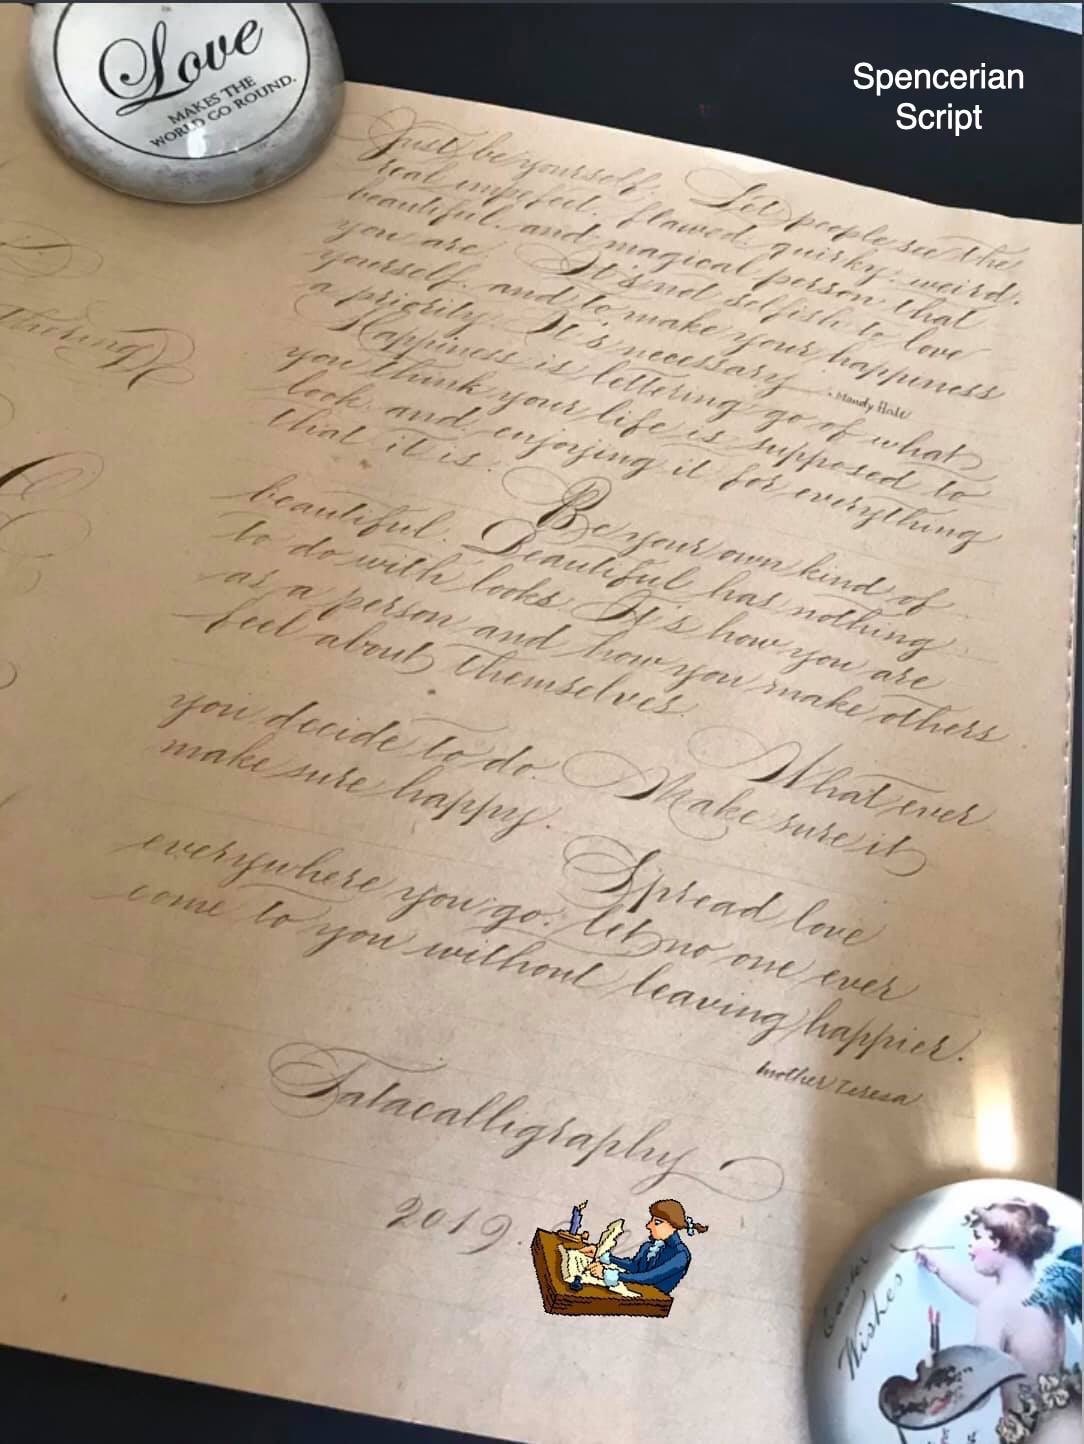 Love
MAKES THE
WORLD GO ROUND.
Spencerian
Script
Just be yourself. Let people see the
real impefect. flawed. quirky. weird.
beautiful. and magical person that
you are. It's not selfish to love
yourself. and to make your happiness
a priority. It's necessary. Mandy Hale
Happiness is lettering go of what
you think your life is supposed to
look. and. enjoying it for everything
that it is.
Be your own kind of
beautiful. Beautiful has nothing
to do with looks. It's how you are
as a person and how you make others
feel about themselves.
What ever
you decide to do. Make sure it
make sure happy.
Spread love
everywhere you go. let no one ever
come to you without leaving happier.
Mother Teresa
Tatacalligraphy
2019.
Easter
Wishes